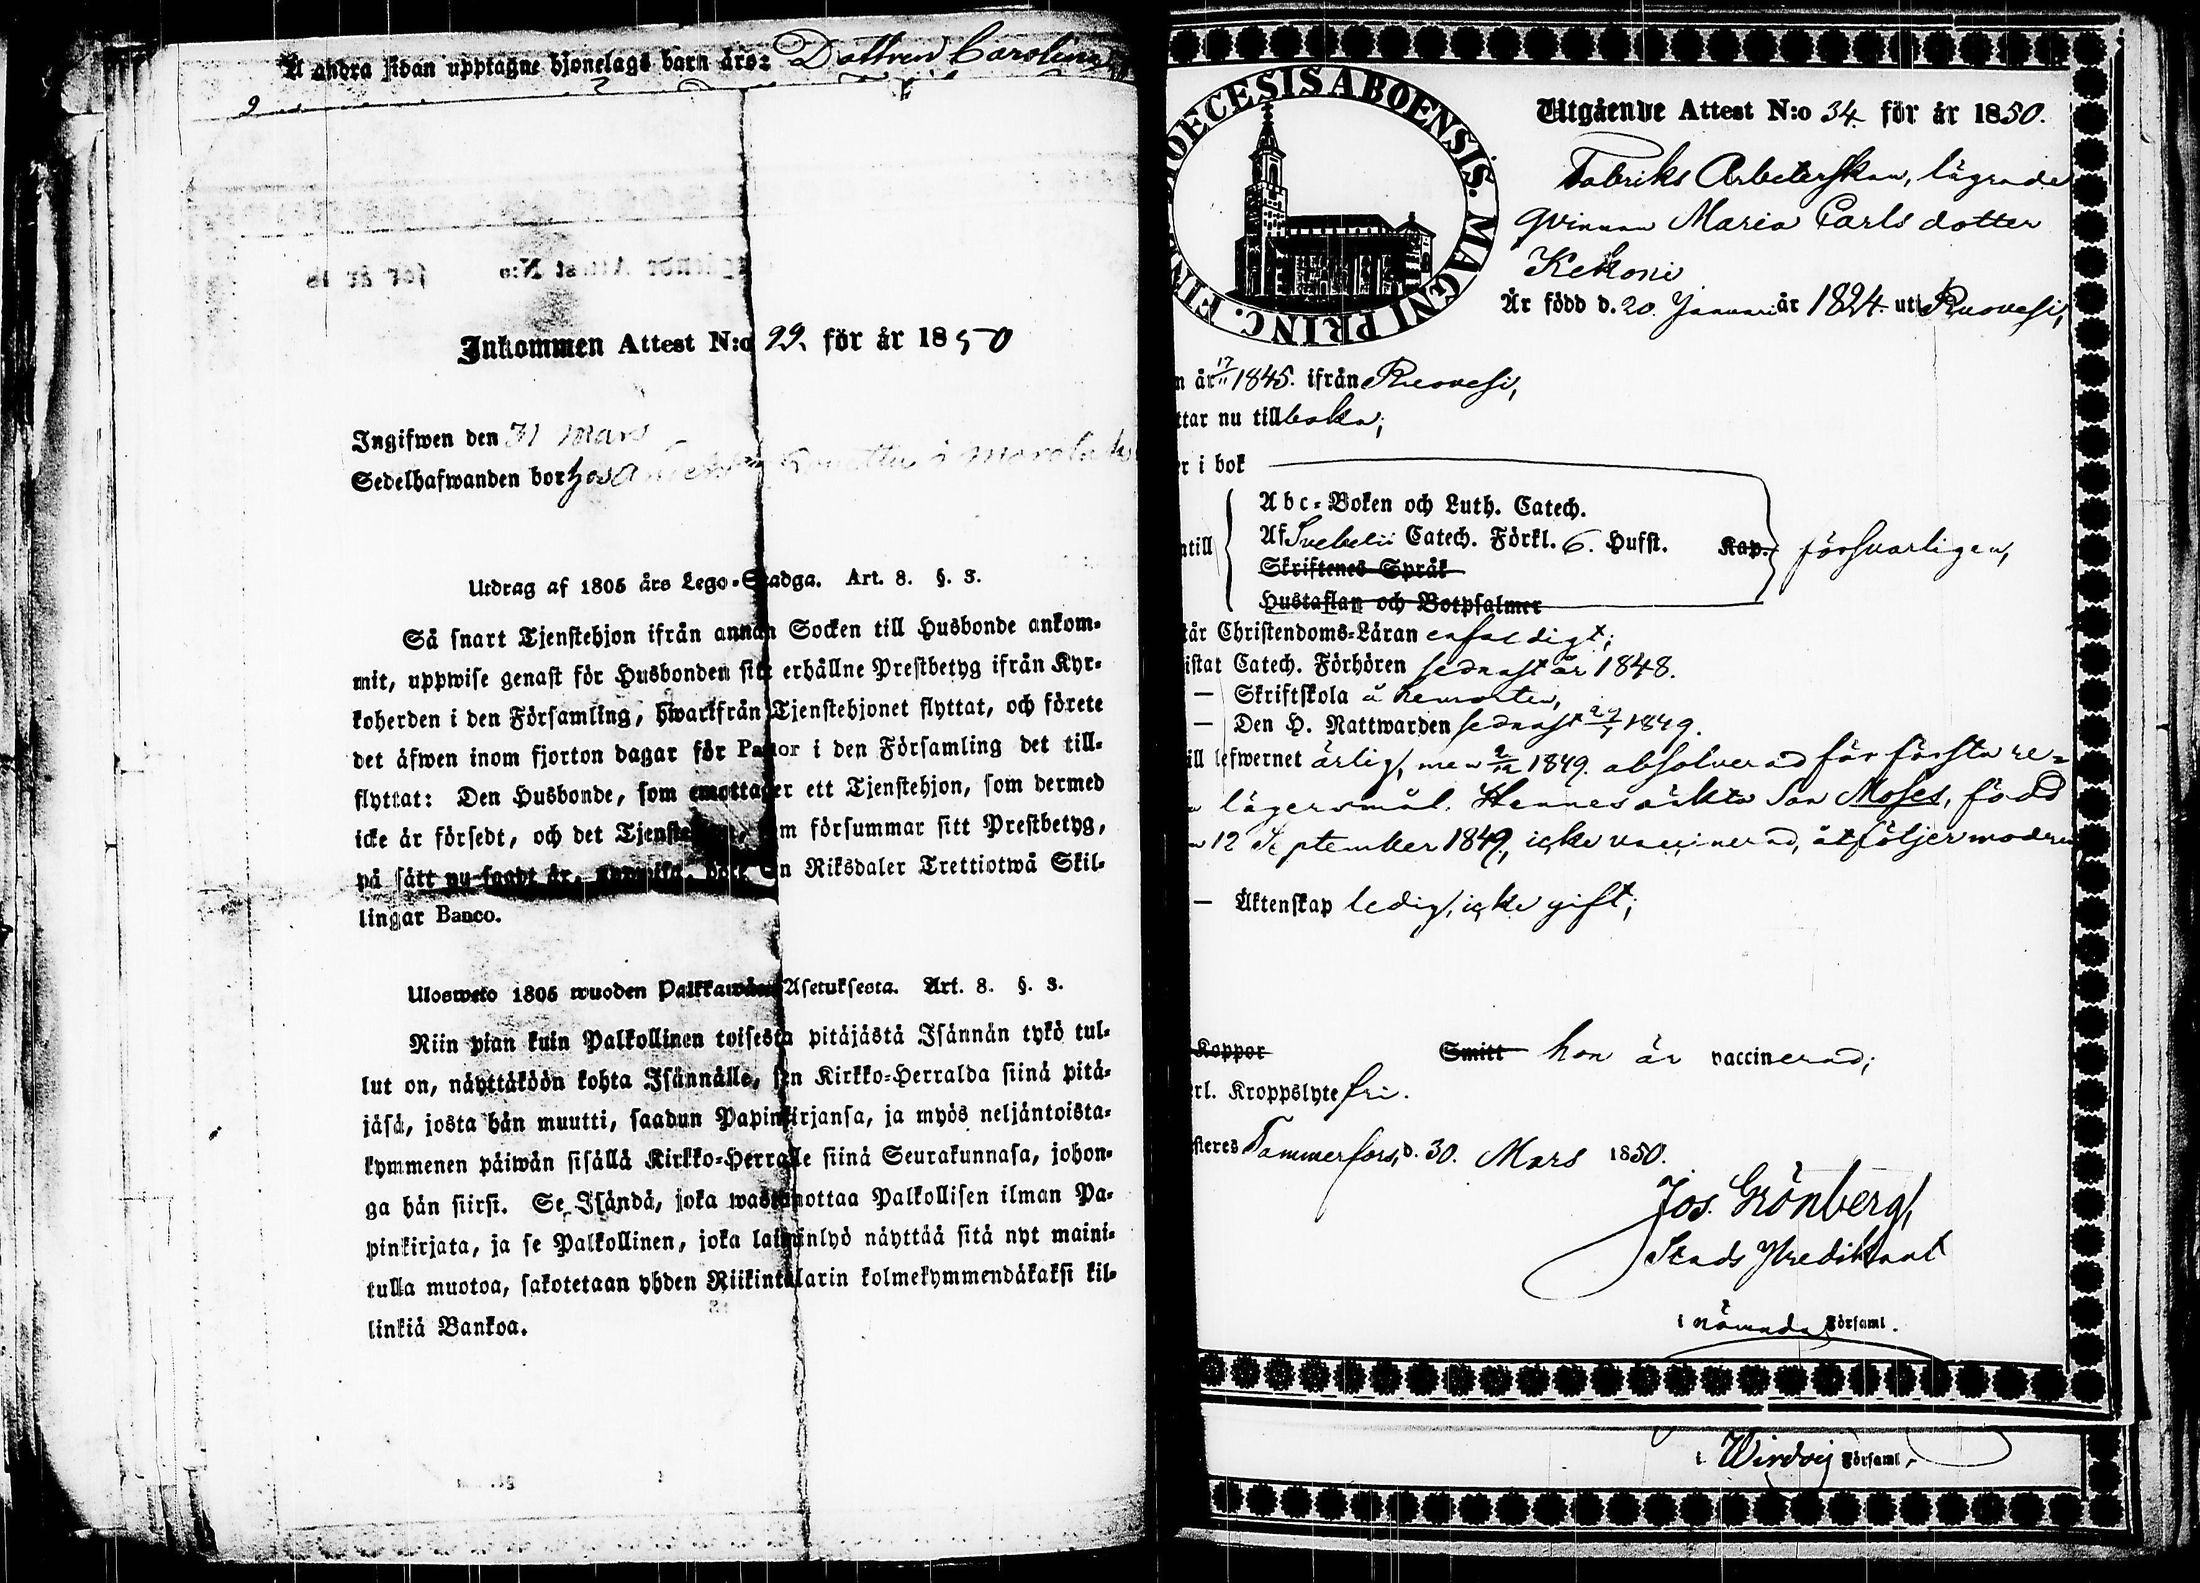 Å andra sidan upptagne hjonelags barn äro: Dottren Carolina
Inkommen Attest N:o 99. för år 1850
Ingifwen den 31 Mars
Sedelhafwanden bor hos
Utdrag af 1805 års Lego-Stadga. Art. 8. §. 3.
Så snart Tjenstehjon ifrån annan Socken till Husbonde ankom-
mit, uppwise genast för Husbonden sitt erhållne Prestbetyg ifrån Kyr-
koherden i den Församling, hwarifrån Tjenstehjonet flyttat, och förete
det äfwen inom fjorton dagar för Pastor i den Församling det till-
flyttat: Den Husbonde, som emottager ett Tjenstehjon, som dermed
icke är försedt, och det Tjenstehjon, som försummar sitt Prestbetyg,
på sätt nu sagdt är, uppwisa, böte en Riksdaler Trettiotwå Skil-
lingar Banco.
Ulosweto 1805 wuoden Palkkawäen Asetuksesta. Art. 8. §. 3.
Niin pian kuin Palkollinen toisesta pitäjästä Isännän tykö tul-
lut on, näyttäköön kohta Isännälle, sen Kirkko-Herralda siinä pitä-
jäsä, josta hän muutti, saadun Papinkirjansa, ja myös neljäntoista-
kymmenen päiwän sisällä Kirkko-Herralle siinä Seurakunnasa, johon-
ga hän siirsi. Se Isändä, joka wastanottaa Palkollisen ilman Pa-
pinkirjata, ja se Palkollinen, joka laiminlyö näyttää sitä nyt maini-
tulla muotoa, sakotetaan yhden Riikintalarin kolmekymmendäkaksi kil-
linkiä Bankoa.
DIOECESIS ABOENSIS. MAGNI PRINC. FIN
Utgående Attest N:o 34. för år 1850.
Fabriks Arbeterskan, lägrade
qvinnan Maria Carls dotter
Kekoni
Är född d. 20. Januari år 1824. uti Ruovesi,
n år 17/11 1845. ifrån Ruovesi,
ttar nu tillbaka;
er i bok
Abc-Boken och Luth. Catech.
ntill Af Svebelii Catech. Förkl. 6. Hufst. Kap. försvarligen,
Skriftenes Språk
Hustaflan och Botpsalmer
tår Christendoms-Läran enfaldigt;
istat Catech. Förhören sednast år 1848.
— Skriftskola å hemorten,
— Den H. Nattwarden sednast 29/7 1849.
ill lefwernet ärlig, men 2/12 1849. absolverad för första re-
n lägersmål. Hennes oäkta Son Moses, född
n 12 September 1849, icke vaccinerad, åtföljer modren
— Äktenskap ledig, icke gift;
Koppor Smitt hon är vaccinerad;
rl. Kroppslyte fri.
steres Tammerfors, d. 30. Mars 1850.
Jos. Grönberg,
Stads Predikant
i nämnda Församl.
i Wirdois Församl.